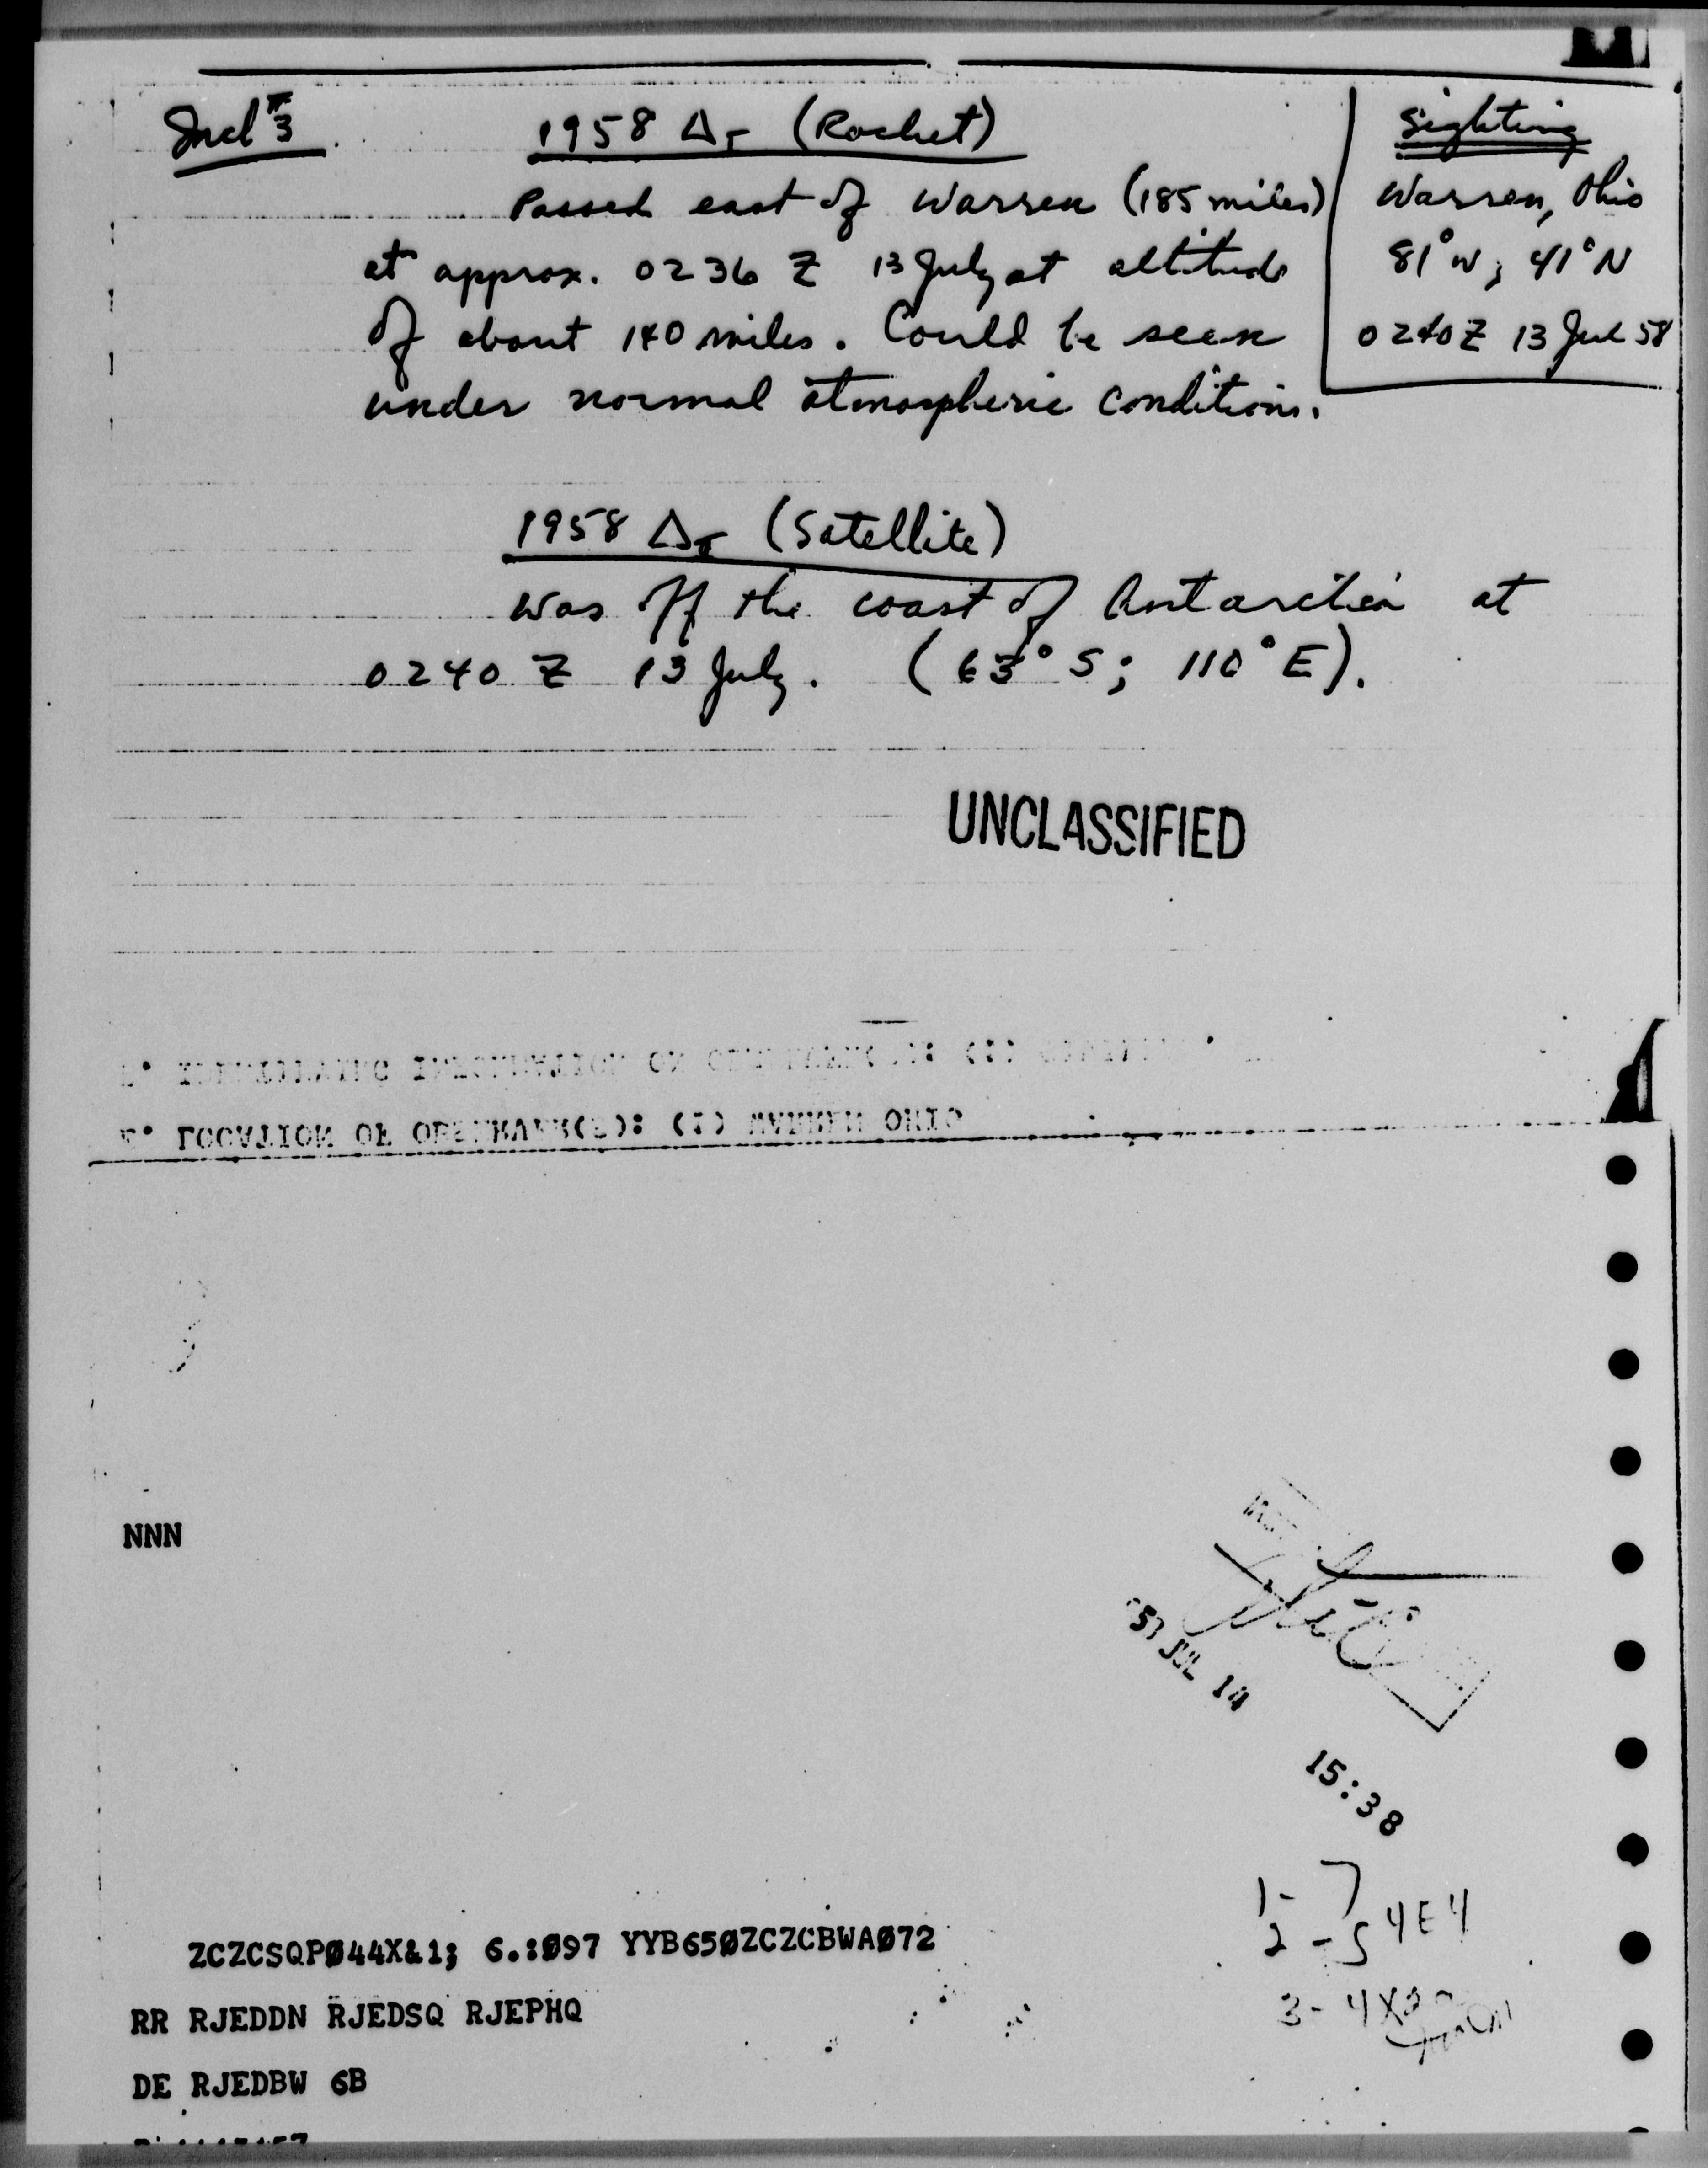 Incl #3
1958 Δ1 (Rocket)
Passed east of Warren (185 miles)
at approx. 0236 Z 13 July at altitude
of about 140 miles. Could be seen
under normal atmospheric conditions.
Sighting
Warren, Ohio
81° W; 41° N
0240 Z 13 Jul 58
1958 Δ (Satellite)
was off the coast of Antarctica at
0240 Z 13 July. (63° S; 110° E).
UNCLASSIFIED
LOCATION OF OBSERVER(S): (1) WARREN OHIO
NNN
JUL 14
15:38
1-
2 - 4E4
3 - 4X
ZCZCSQPØ44X&1; 6.:Ø97 YYB65ØZCZCBWAØ72
RR RJEDDN RJEDSQ RJEPHQ
DE RJEDBW 6B